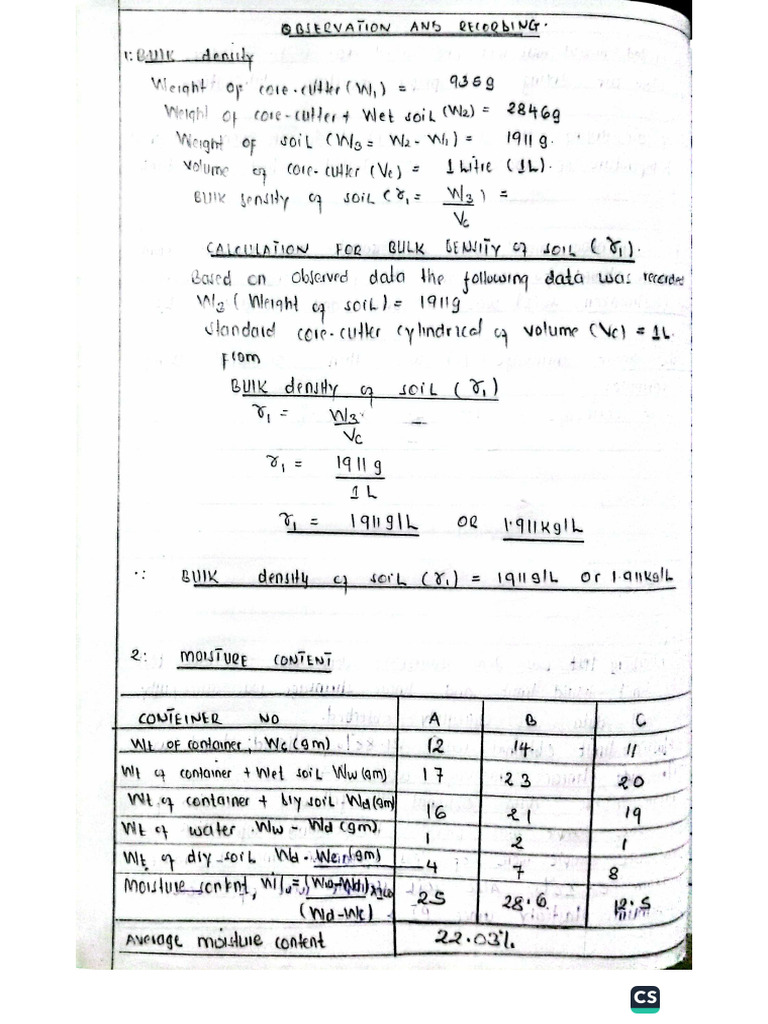 OBSERVATION AND RECORDING.
1: BULK density
Weight of core-cutter (W1) = 935g
Weight of core-cutter + Wet soil (W2) = 2846g
Weight of soil (W3 = W2 - W1) = 1911g.
Volume of core-cutter (Vc) = 1 Litre (1L).
BULK density of soil (γ1 = W3/Vc) =
CALCULATION FOR BULK DENSITY of SOIL (γ1).
Based on observed data the following data was recorded
W3 (Weight of soil) = 1911g
Standard core-cutter cylindrical of volume (Vc) = 1L.
from
BULK density of soil (γ1)
γ1 = W3/Vc
γ1 = 1911g/1L
γ1 = 1911g/L OR 1.911kg/L
∴ BULK density of soil (γ1) = 1911g/L or 1.911kg/L
2: MOISTURE CONTENT
CONTEINER NO A B C
Wt of container, Wc (gm) 12 14 11
Wt of container + Wet soil Ww (gm) 17 23 20
Wt. of container + Dry soil Wd (gm) 16 21 19
Wt of water Ww - Wd (gm) 1 2 1
Wt of dry soil Wd - Wc (gm) 4 7 8
Moisture content, (Ww-Wd)/(Wd-Wc) 25 28.6 12.5
Average moisture content 22.03%
CS